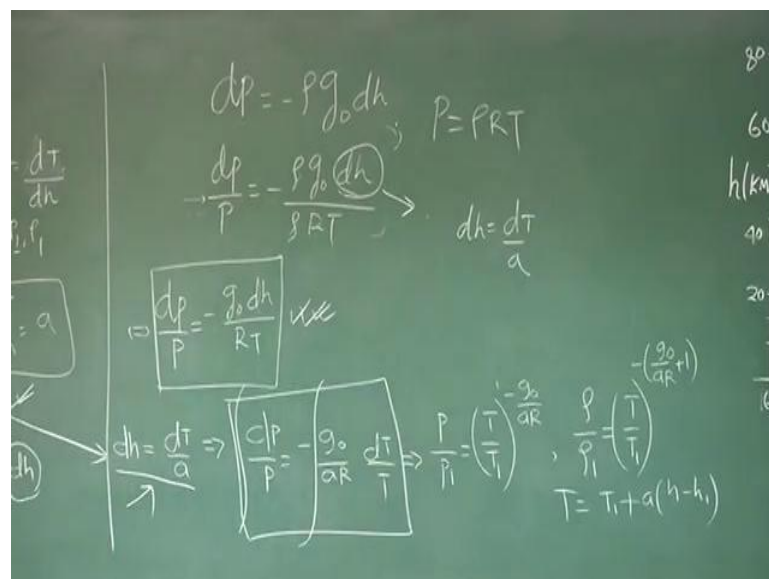 dp = - ρg₀dh
P = ρRT
→ dp/P = - ρg₀ dh/ρRT
dh = dT/a
= dT/dh
P₁, ρ₁
= a
⇒ dp/P = - g₀ dh/RT
dh
dh = dT/a ⇒ dP/P = - g₀/aR dT/T ⇒ P/P₁ = (T/T₁)^(-g₀/aR) , ρ/ρ₁ = (T/T₁)^(-(g₀/aR+1))
T = T₁ + a(h-h₁)
80
60
h(km
40
20